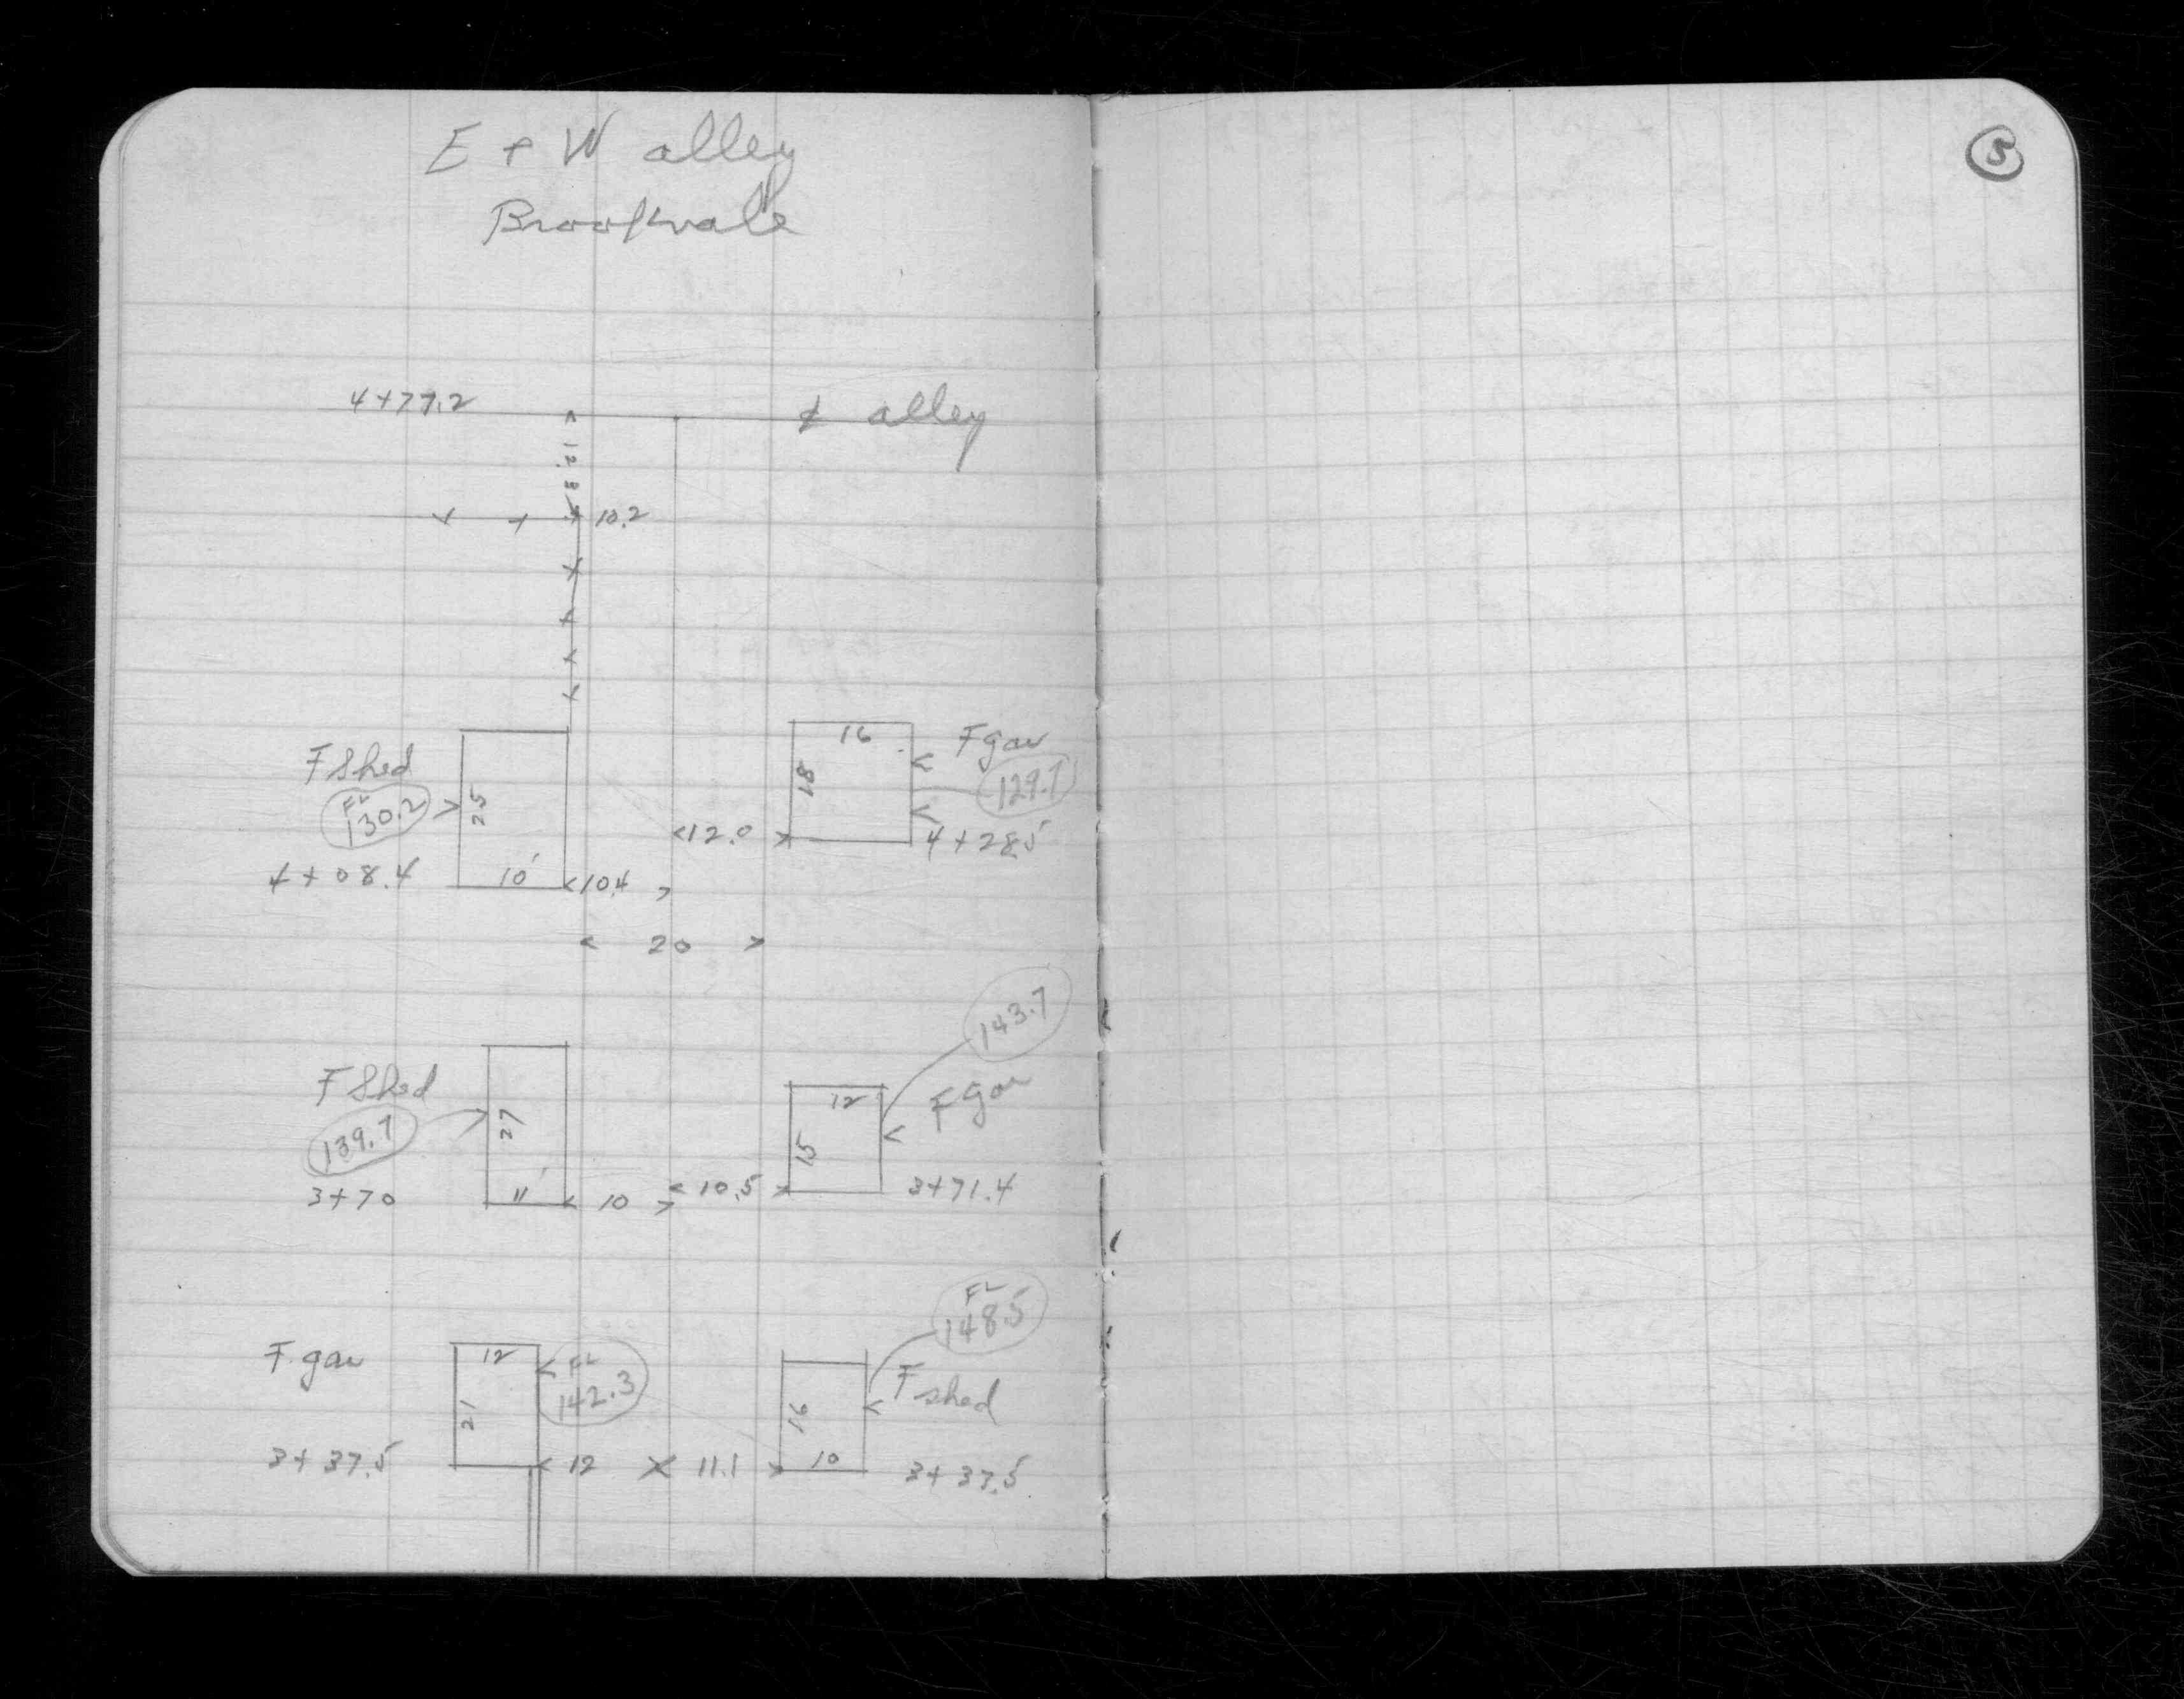 E + W alley
Brookvale
5
4+77.2
℄ alley
12.8
10.2
F Shed
FL
130.2
25
10'
4+08.4
<10.4>
16
18
F gar
129.7
<12.0>
4+28.5
< 20 >
143.7
F Shed
139.7
27
11'
3+70
< 10 >
<10.5>
12
15
F gar
3+71.4
FL
148.5
F. gar
12
21
FL
142.3
3+37.5
< 12 X 11.1 >
16
10
F shed
3+37.5